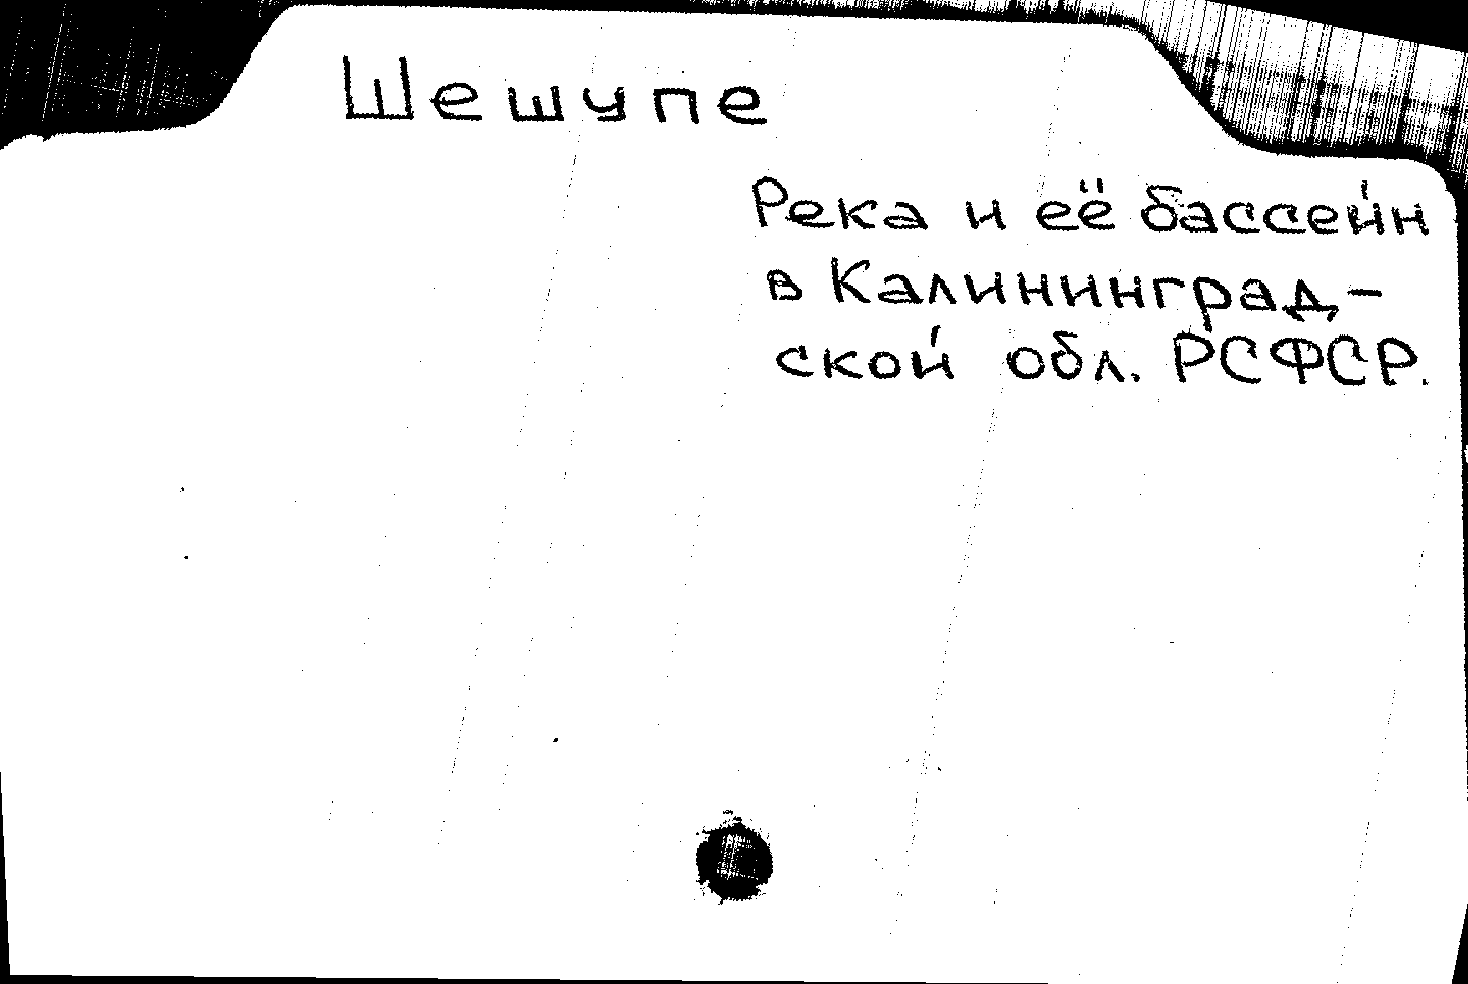 Шешупе
Река и её бассейн
в Калининград-
ской обл. РСФСР.